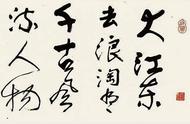 大江东
去浪淘尽
千古风
流人物